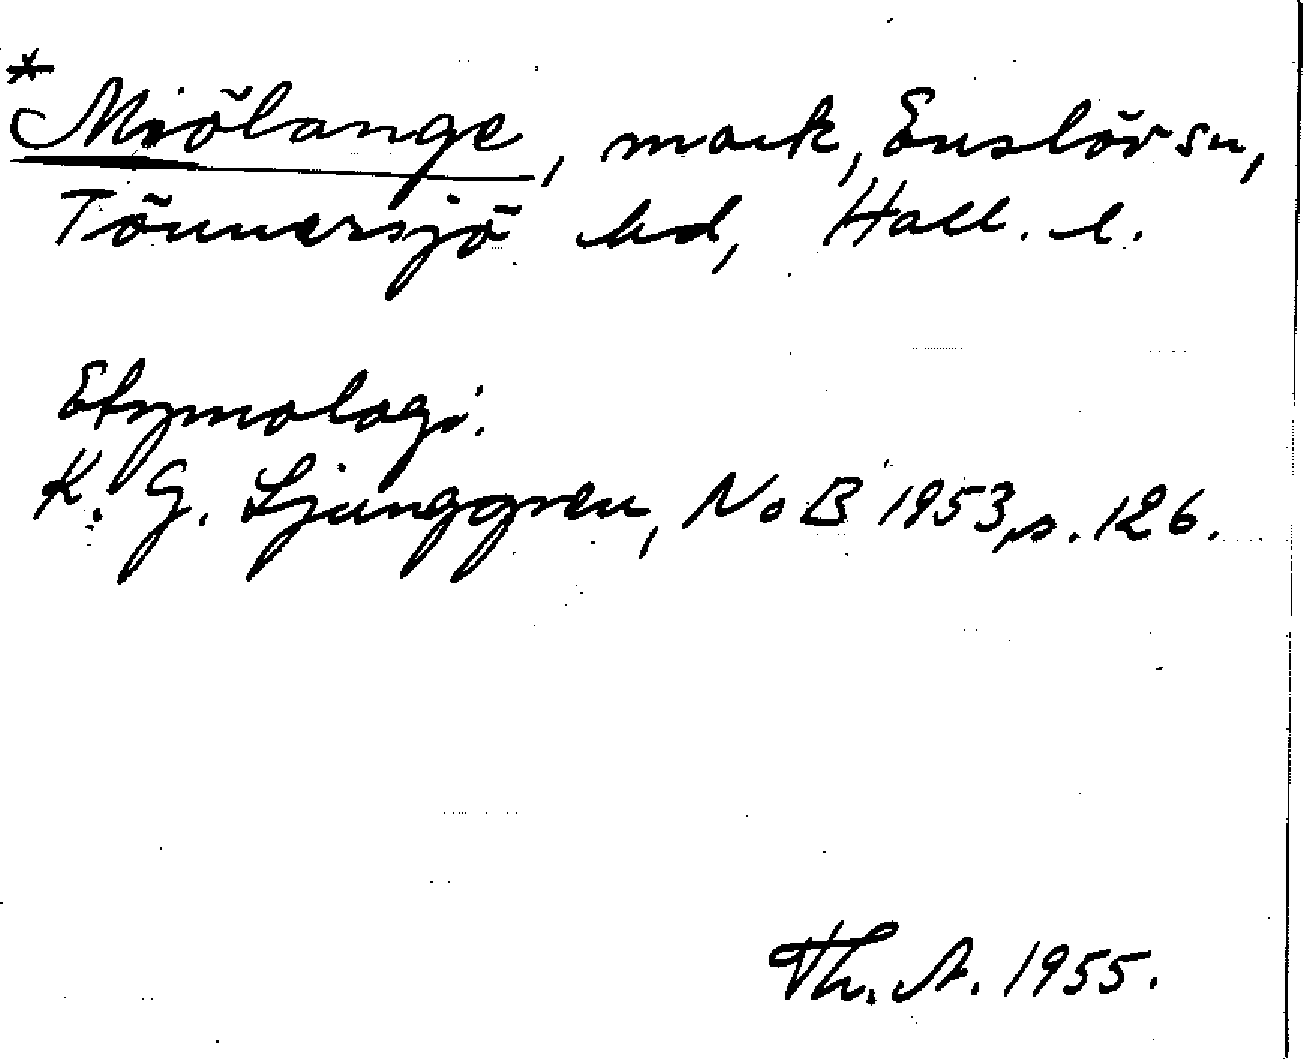 *Miölange, mark, Enslöv sn,
Tönnersjö hd, Hall. l.
Etymologi.
K. G. Ljunggren, NoB 1953, s. 126.
Th. A. 1955.